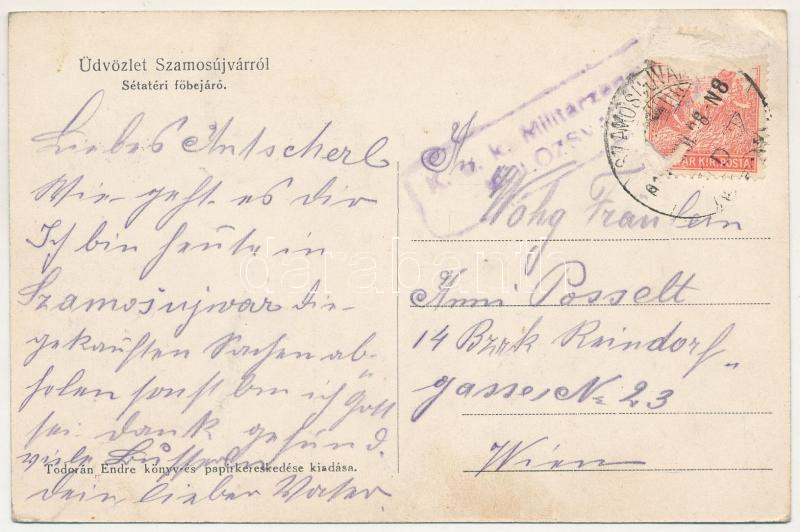 Üdvözlet Szamosújvárról
Sétatéri főbejáró.
Liebes Tutscherl
Wie geht es dir
Ich bin heute in
Szamosujwar die
gekauften Sachen ab-
holen sonst bin ich Gott
sei dank gesund.
viele Busserln
dein lieber Vater
Todorán Endre könyv-és papirkereskedése kiadása.
K. u. k. Militärzensur
KOLOZSV
SZAMOSUJVÁR
N8
MAGYAR KIR. POSTA
An
Wohg Fraulein
Anni Posselt
14 Bzrk Reindorf-
gasse, No 23
Wien
darabanth